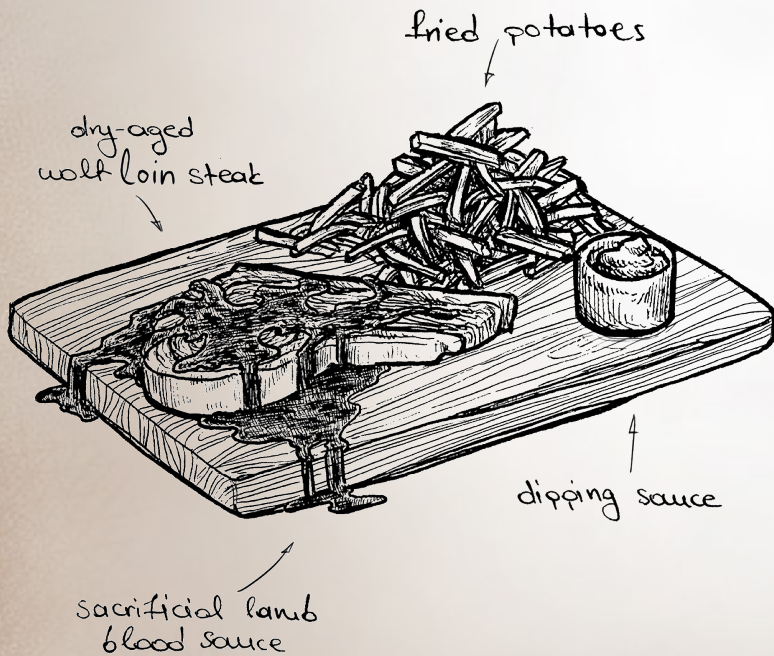 fried potatoes
dry-aged
wolf loin steak
dipping sauce
sacrificial lamb
blood sauce